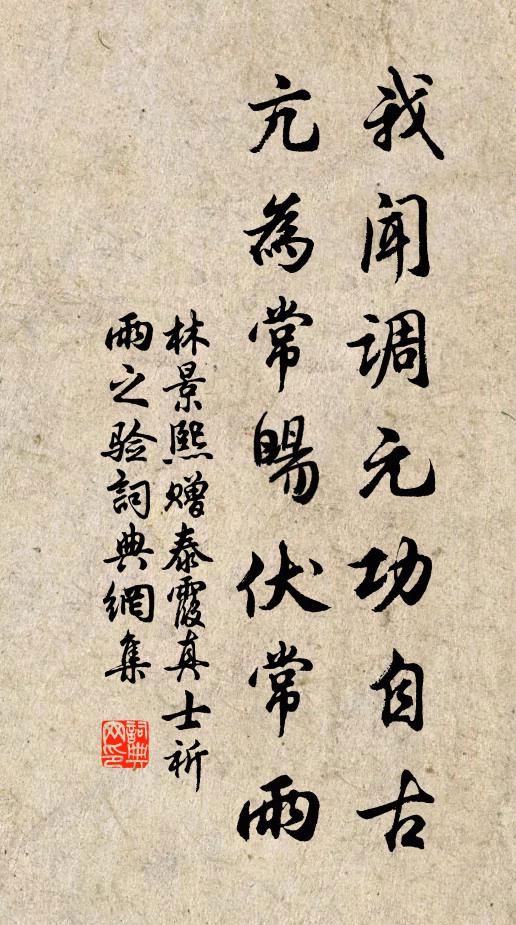 我闻调元功自古
亢為常暘伏常雨
林景熙赠泰霞真士祈
雨之验詞典網集
詞典
网印